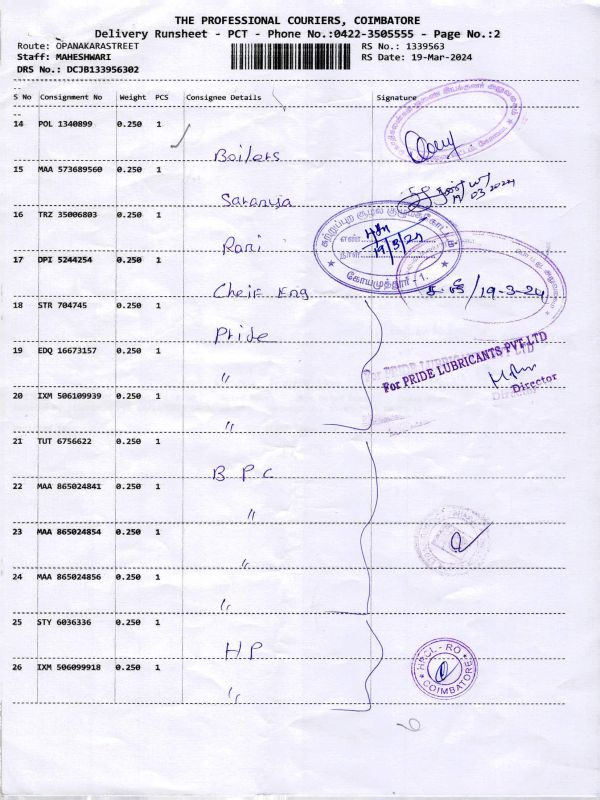 THE PROFESSIONAL COURIERS, COIMBATORE
Delivery Runsheet - PCT - Phone No.:0422-3505555 - Page No.:2
Route: OPANAKARASTREET RS No.: 1339563
Staff: MAHESHWARI RS Date: 19-Mar-2024
DRS No.: DCJB133956302
S No Consignment No Weight PCS Consignee Details Signature
14 POL 1340899 0.250 1
Boilers
15 MAA 573689560 0.250 1
Saranya
16 TRZ 35006803 0.250 1
Rani
17 DPI 5244254 0.250 1
Cheif Eng
எண்
நாள்
19/3/24
கோயமுத்தூர் - 1.
/19-3-24
18 STR 704745 0.250 1
Pride
19 EDQ 16673157 0.250 1
"
For PRIDE LUBRICANTS PVT LTD
Director
20 IXM 506109939 0.250 1
"
21 TUT 6756622 0.250 1
B P C
22 MAA 865024841 0.250 1
"
23 MAA 865024854 0.250 1
"
24 MAA 865024856 0.250 1
"
25 STY 6036336 0.250 1
HP
26 IXM 506099918 0.250 1
"
HPCL - RO
COIMBATORE